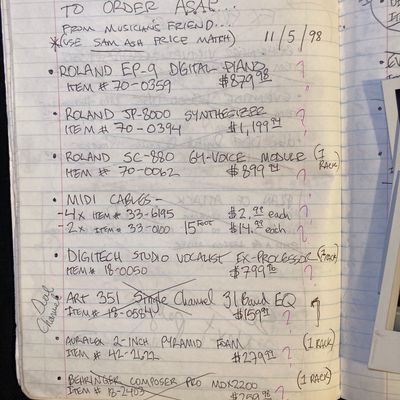 TO ORDER ASAP...
FROM MUSICIAN'S FRIEND...
*(USE SAM ASH PRICE MATCH)
11/5/98
• ROLAND EP-9 DIGITAL PIANO ?
ITEM # 70-0359 $879.98
• ROLAND JP-8000 SYNTHESIZER ?
ITEM # 70-0394 $1,199.99
• ROLAND SC-880 64-VOICE MODULE (1 RACK)
ITEM # 70-0062 $899.99 ?
• MIDI CABLES -
- 4x ITEM # 33-6195 $2.99 each ?
- 2x ITEM # 33-0100 15 FOOT $14.99 each ?
• DIGITECH STUDIO VOCALIST EX-PROCESSOR
ITEM # 18-0050 $799.96 ?
Dual Channel
• ART 351 Single Channel 31 Band EQ
ITEM # 18-0584 $159.91 ?
• AURALEX 2-INCH PYRAMID FOAM (1 RACK)
ITEM # 42-2622 $279.99 ?
• BEHRINGER COMPOSER PRO MDX2200 (1 RACK)
ITEM # 18-2403 ?